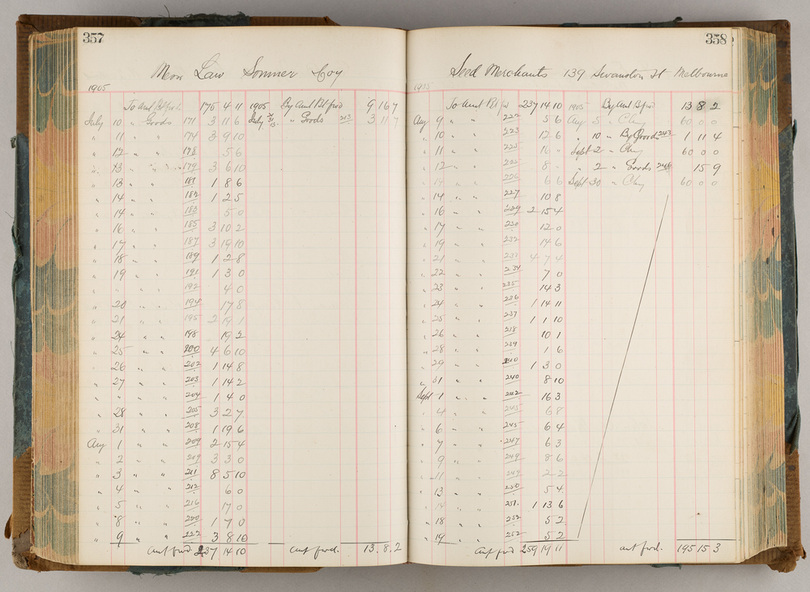 357
Mon Law Sonner Coy
1905
To Amt Bt fwd 175 4 11 1905 By Amt Bt fwd 9 16 7
July 10 " Goods 171 3 11 6 July " Goods 3 11 7
" 11 " " 174 3 9 10
" 12 " " 178 5 6
" 13 " " 179 3 6 10
" 13 " " 181 1 8 6
" 14 " " 183 1 2 5
" 14 " " 5 0
" 16 " " 185 3 10 2
" 17 " " 187 3 19 10
" 18 " " 189 1 2 8
" 19 " " 191 1 3 0
" " " 192 4 0
" 20 " " 194 17 8
" 21 " " 195 2 19 1
" 24 " " 198 19 2
" 25 " " 200 4 6 10
" 26 " " 202 1 14 8
" 27 " " 203 1 14 2
" " " 204 1 4 0
" 28 " " 205 3 2 7
" 31 " " 208 1 19 6
Aug 1 " " 209 2 15 4
" 2 " " 3 3 0
" 3 " " 211 8 5 10
" 4 " " 212 6 0
" 5 " " 216 17 0
" 8 " " 220 1 7 0
" 9 " " 222 3 8 10
Amt fwd. 237 14 10 Amt fwd. 13. 8. 2
358
Seed Merchants 139 Swanston St Melbourne
To Amt Bt fwd 237 14 10 1905 By Amt Bt fwd 13 8 2
Aug 9 " " 5 6 Aug 60 0 0
" 10 " " 223 12 6 " 10 " By Goods 1 11 4
" 11 " " Sept 2 " 60 0 0
" 12 " " " 2 " Goods 15 9
" " " 6 6 Sept 30 " 60 0 0
" 14 " " 227 10 8
" 16 " " 229 2 15 4
" 17 " " 12 0
" 19 " " 232 14 6
" 21 " " 4 7 4
" 22 " " 234 7 0
" 23 " " 235 14 3
" 24 " " 236 1 14 11
" 25 " " 237 1 1 10
" 26 " " 10 1
" 28 " " 239 1 6
" 29 " " 240 1 3 0
" 31 " " 8 10
Sept 1 " " 242 16 3
" 4 " " 6 8
" 6 " " 245 6 4
" 7 " " 247 6 3
" 9 " " 8 6
" 11 " " 2 2
" 13 " " 250 5 4
" " " 251 1 13 6
" 18 " " 252 5 2
" 19 " " 5 2
Amt fwd 259 19 11 Amt fwd. 195 15 3